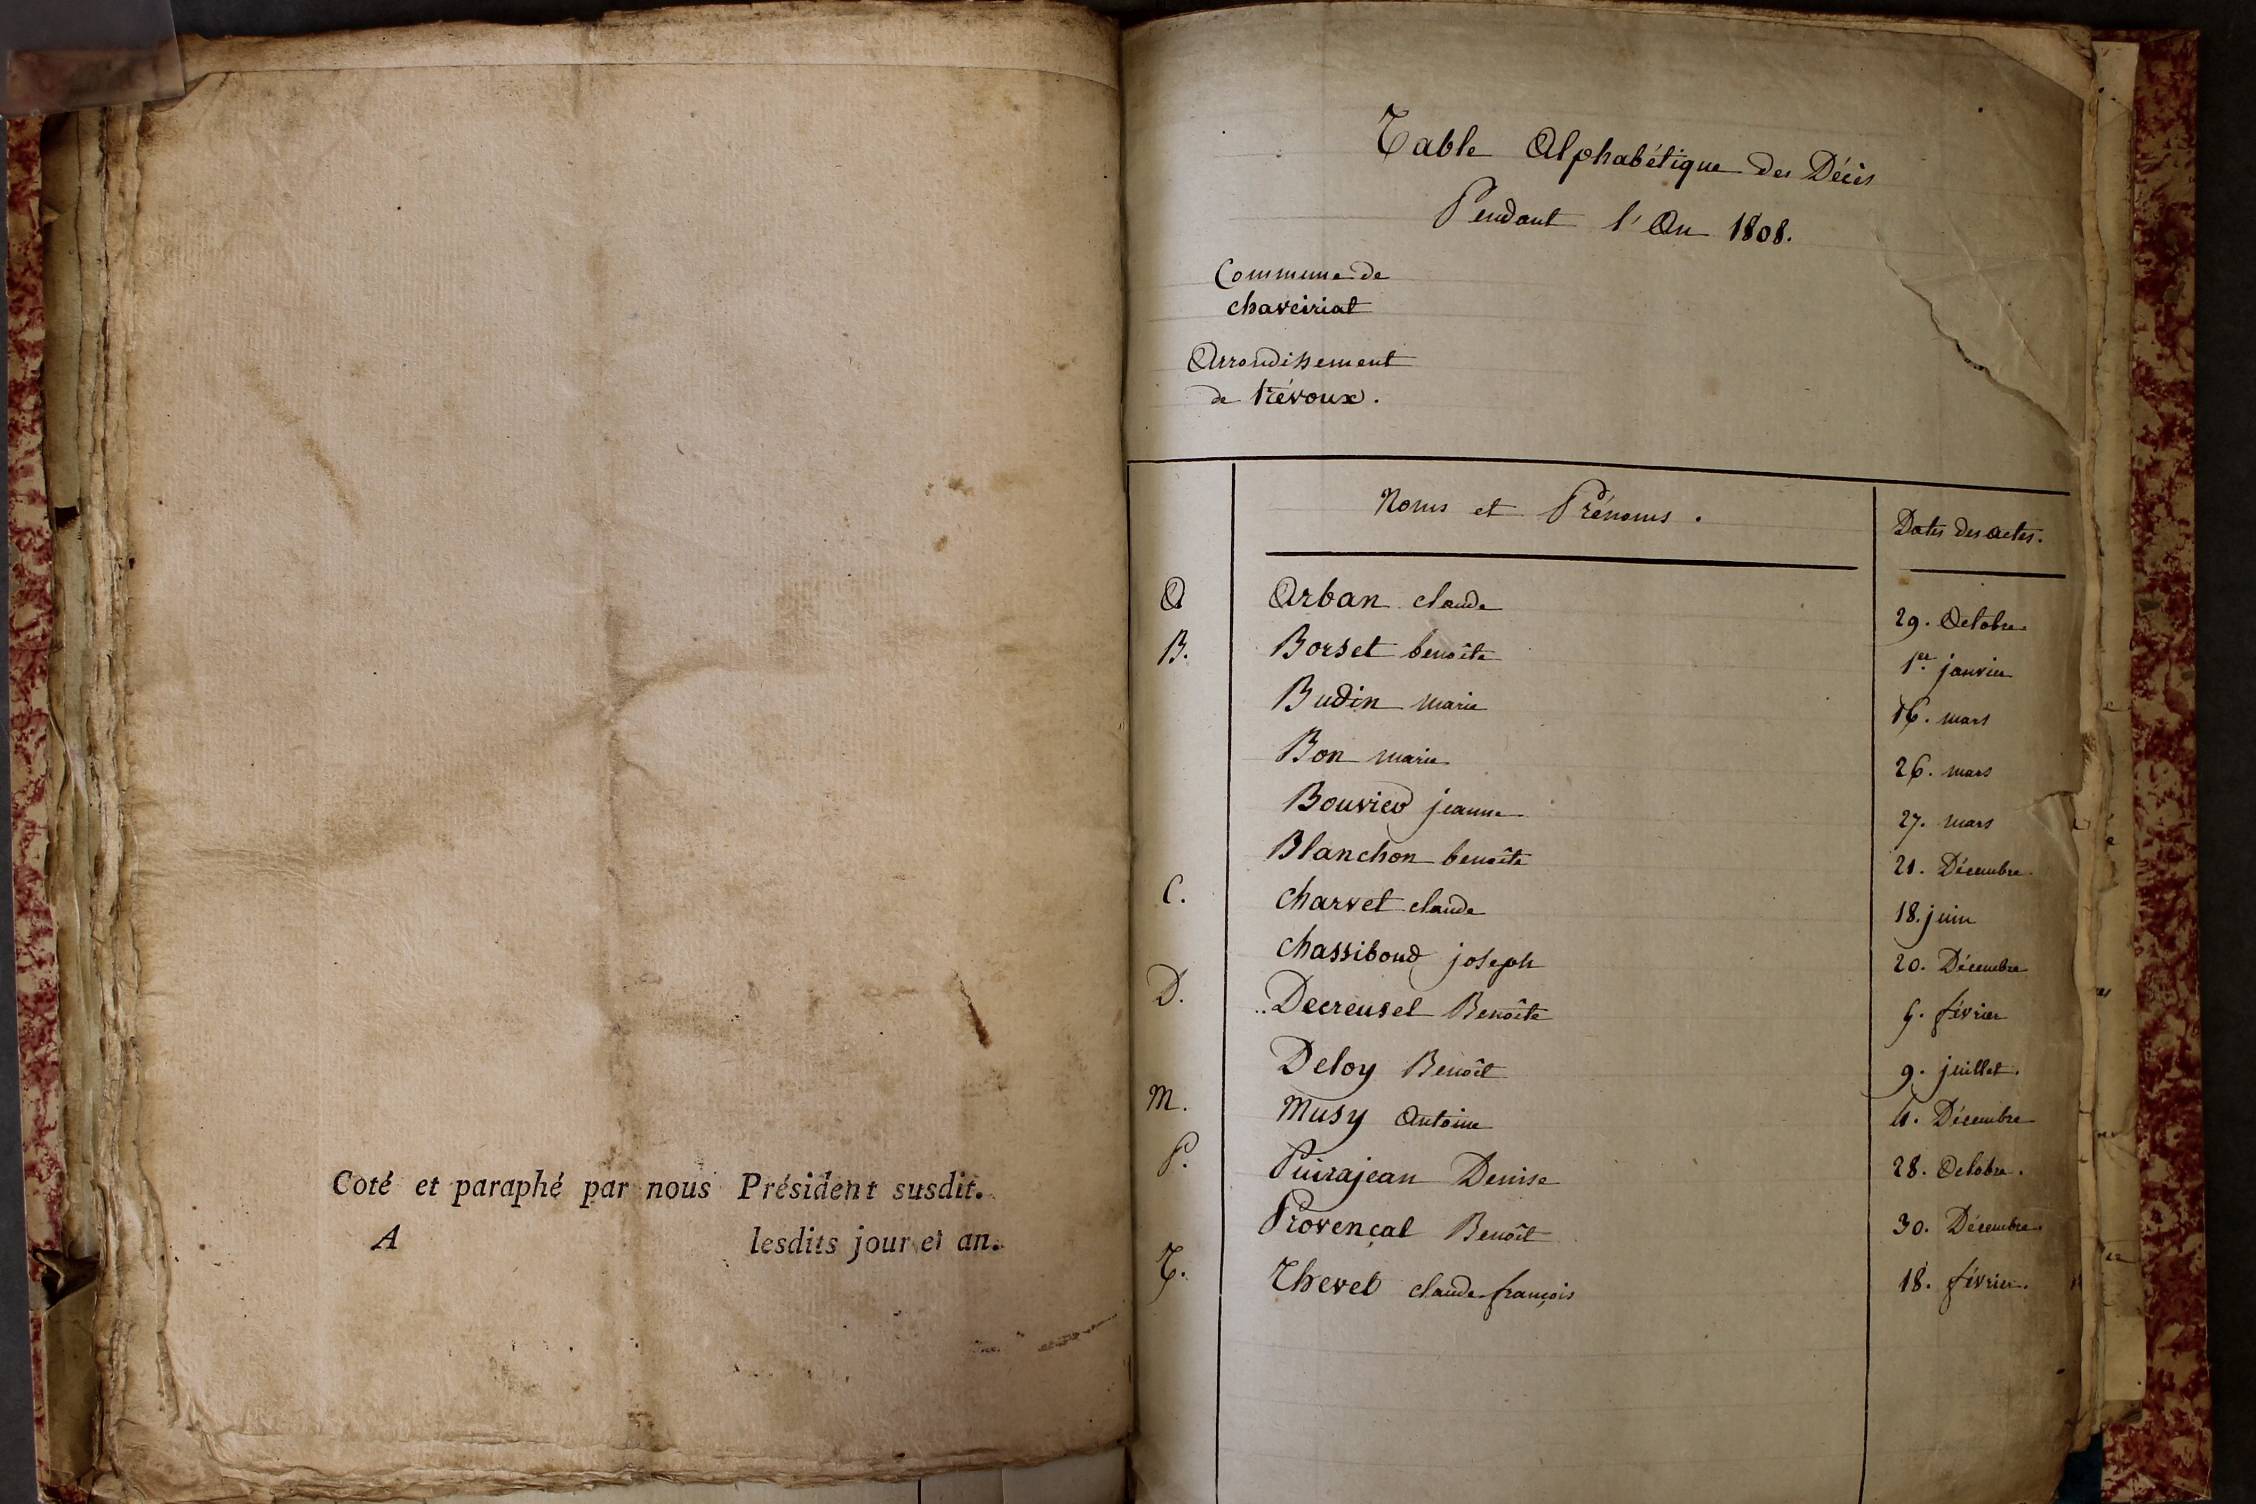 Coté et paraphé par nous Président susdit.
A lesdits jour et an.
Table Alphabétique des Décès
Pendant l'An 1808.
Commune de
chaveiriat
Arrondissement
de trévoux.
Noms et Prénoms. Dates des actes.
A Arban claude 29. Octobre
B. Borset benoîte 1er janvier
Budin marie 16. mars
Bon marie 26. mars
Bouvier jeanne 27. mars
Blanchon benoîte 21. Décembre
C. charvet claude 18. juin
chassiboud joseph 20. Décembre
D. Decreusel Benoîte février
Deloy Benoît 9. juillet.
M. Musy Antoine Décembre
P. Puirajean Denise 28. Octobre.
Provençal Benoît 30. Décembre
T. Thevet claude françois 18. février.